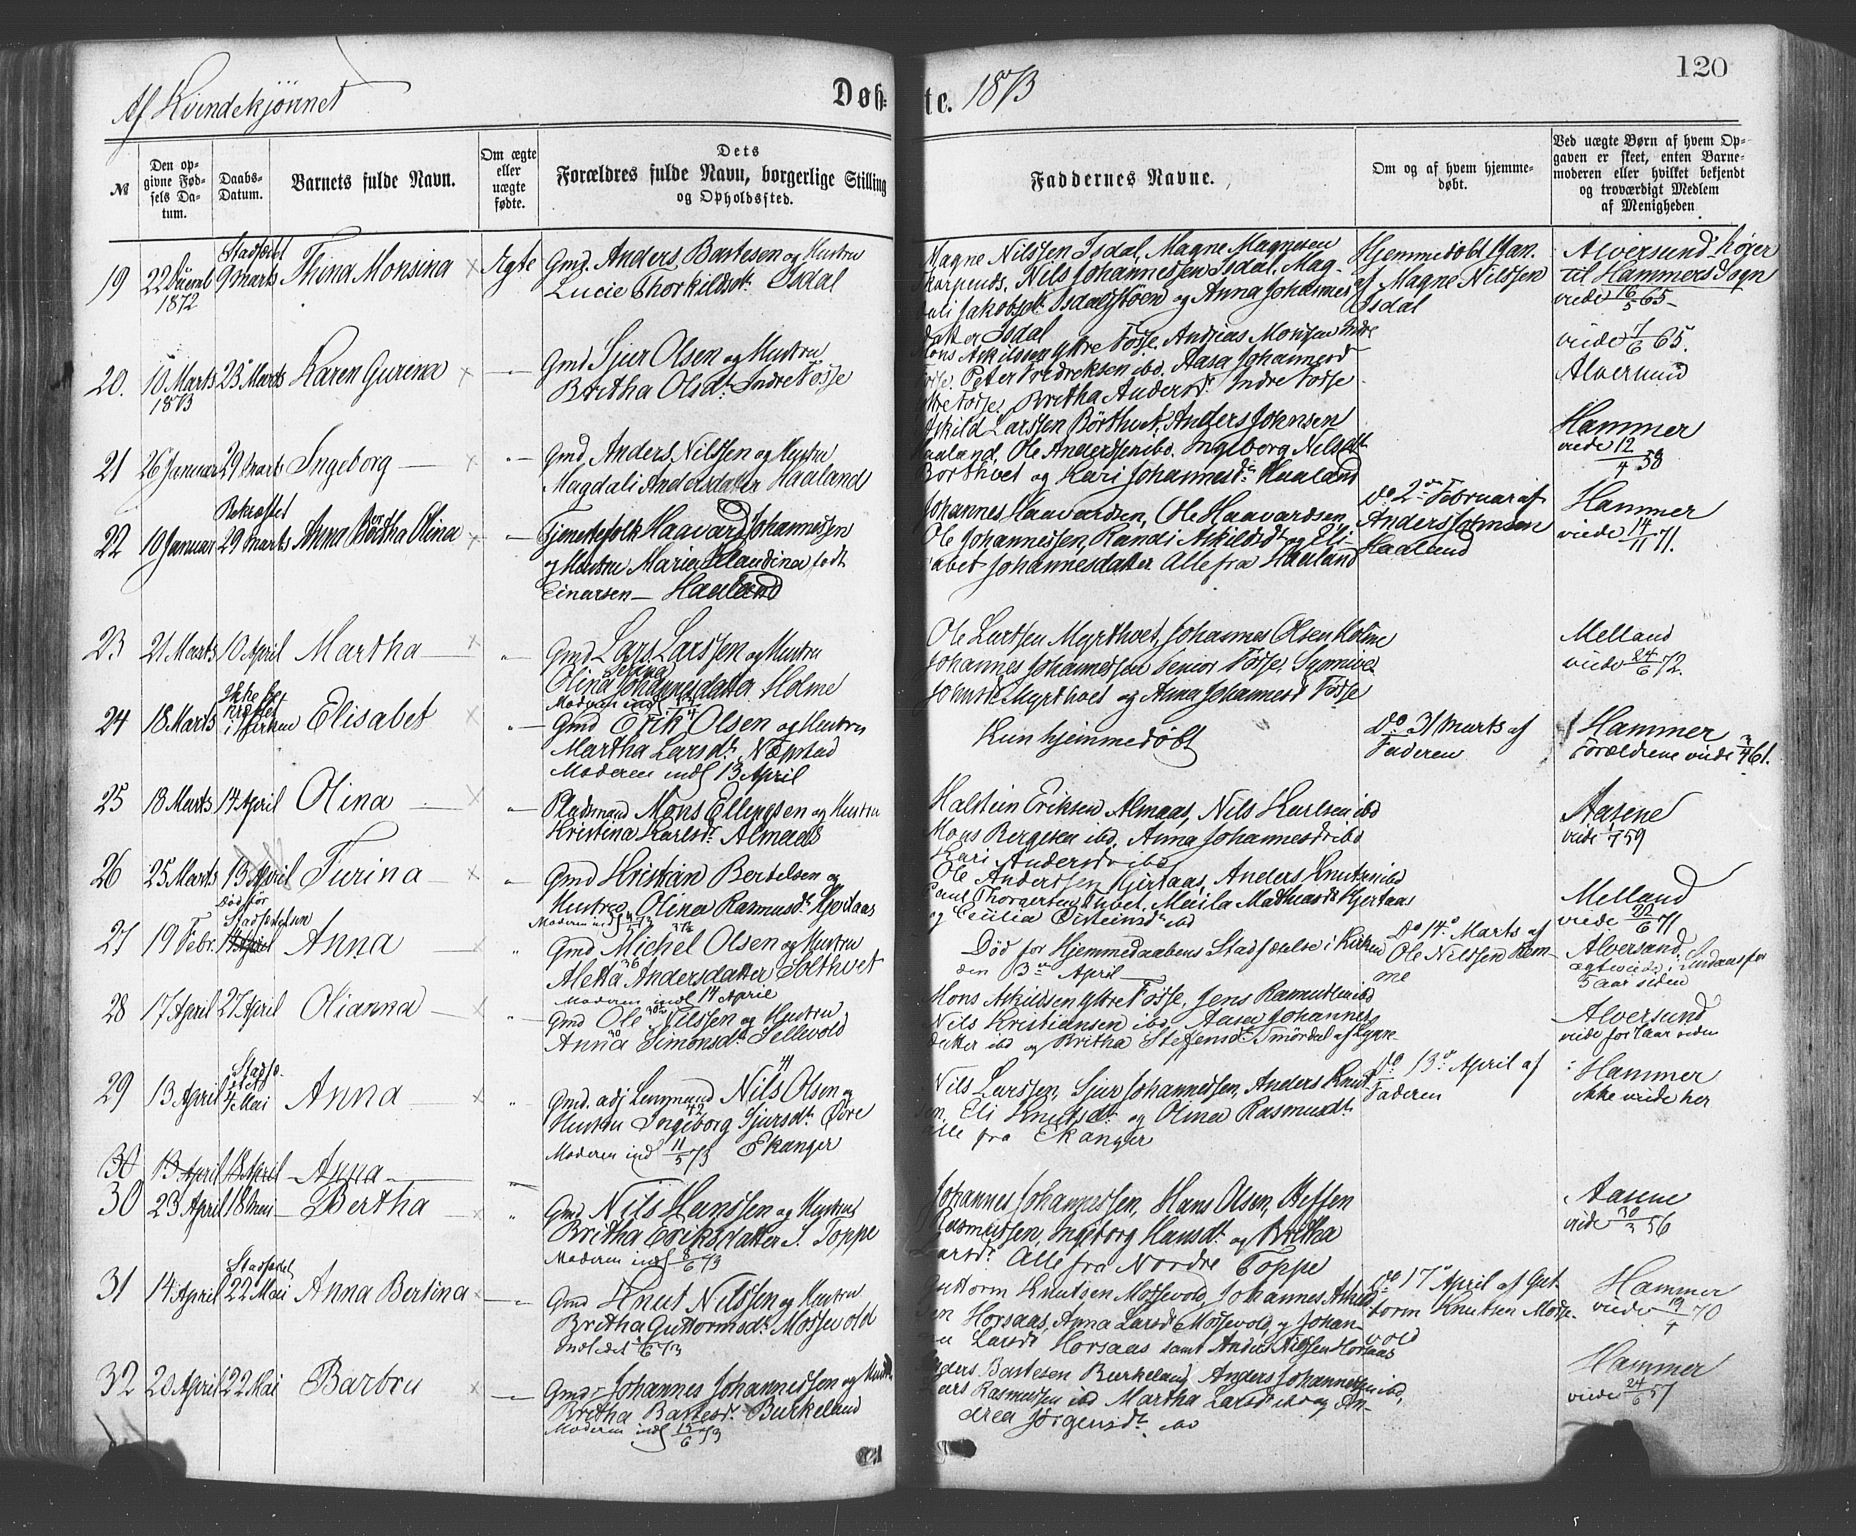 120
Af Kvindekjønnet
Døbte. 1873
№
Den opgivne Fødsels Datum.
Daabs-Datum.
Barnets fulde Navn.
Om ægte eller uægte fødte.
Dets Forældres fulde Navn, borgerlige Stilling og Opholdssted.
Faddernes Navne.
Om og af hvem hjemmedøbt.
Ved uægte Børn af hvem Opgaven er skeet, enten Barnemoderen eller hvilket bekjendt og troværdigt Medlem af Menigheden
19 22 Decemb 1872 Stadfædet 9 Marts Thina Monsina × Ægte
Gmd. Anders Bartesen og Hustru
Lucie Thorkildsdt. Isdal
Magne Nilssen Isdal, Magne Magnesen
Nils Johannessen Isdal, Mag-
dali Jakobsdt. Isdalstøen og Anna Johannes
datter Isdal
Hjemmedøbt 4 Jan.
af Magne Nilssen
Isdal
Alversund hører
til Hammers Sogn
viede 16/5 65
20. 10 Marts 1873 23 Marts Karen Gurina × "
Gmd Sjur Olsen og Hustru
Britha Olsdt. Indre Fosse
Mons Askildsen Yttre Fosse, Andreas Monssen Indre
Fosse, Peter Fredriksen ibd. Aasa Johannesd
Yttre Fosse, Britha Andersdt. Indre Fosse
viede 7/6 65.
Alversund
21 26 Januar 29 Marts Ingeborg × "
Gmd Anders Nilssen og Hustru
Magdali Andersdatter Haaland
Askild Larssen Børthvet, Anders Johnsen
Haaland, Ole Anderssen ibd. Ingeborg Nilsdt
Borthvet og Kari Johannesdt. Haaland
Hammer
viede 12/4 58
22 10 Januar Bekræftet 29 Marts Anna Bertha Olina × "
Tjenestefolk Haavard Johannessen
og Hustru Maria Klaudina født
Einarsen – Haaland
Johannes Haavardsen, Ole Haavardsen,
Ole Johannessen, Randi Askildsdt og Eli-
sabet Johannesdatter Alle fra Haaland
Do 2den Februar af
Anders Johnsen
Haaland
Hammer
viede 14/11 71.
23 21 Marts 10 April Martha × "
Gmd Lars Larssen og Hustru
Olina Johannesdatter Holme
Ole Larssen Myrthvet, Johannes Olsen Holme
Johannes Johannessen Senior Fosse, Synneve
Johnsdt Myrthvet og Anna Johannesd Fosse
Melland
viede 24/6 72.
24 18 Marts Ikke bekræftet i Kirken Elisabet "
Gmd Erik Olsen og Hustru
Martha Larsdt. Næpstad
Moderen indl 13 April
Kun hjemmedøbt
Do 31 Marts af
Faderen
Hammer
Forældrene viede 3/4 61.
25 18 Marts 14 April Olina × "
Pladsmand Mons Ellingsen og Hustru
Kristina Karlsdt. Almaas
Halstein Eriksen Almaas, Nils Karlsen ibd
Mons Bergesen ibd, Anna Johannesdt ibd
Kari Andersdt ibd
Aasene
viede 1/7 59
26 25 Marts 13 April Turina × "
Gmd Kristian Bertelsen og
Hustru Olina Rasmusdt. Hjertaas
Ole Anderssen Hjertaas, Anders Knutsen ibd
og Cecilia Østeinsdt ibd
Melland
viede 22/6 71
27 19 Febr. død før Stadfæstelsen Anna × "
Gmd Michel Olsen og Hustru
Aletta Andersdatter Solthvet
Moderen indl 14 April
Død før Hjemmedaabens Stadfæstelse i Kirken
den 3die April
Do 14de Marts af
Ole Nilssen Rem-
me
Alversund,
5 aar siden
28 17 April 27 April Olianna × "
Gmd Ole Nilssen og Hustru
Anna Simonsdt. Sellevold
Mons Askildsen Yttre Fosse, Jens Rasmussen ibd
Nils Kristiansen ibd, Aasa Johannes
datter ibd og Britha Steffensdt
Alversund
viede for 1 aar siden
29 13 April 4 Mai Anna × "
Gmd. Nils Olsen og
Hustru Ingeborg Sjursdt. Øvre
Moderen ind 11/5 73 Ekanger
Nils Larssen, Sjur Johannessen, Anders Knut
sen, Eli Knutsdt. og Olina Rasmusdt.
Alle fra Ekanger
Do 13de April af
Faderen
Hammer
ikke viede her
30 13 April Anna
30 23 April 18 Mai Bertha × "
Gmd. Nils Hanssen og Hustru
Britha Eriksdatter S. Toppe
Moderen indl 8/6 73
Johannes Johannessen, Hans Olsen, Steffen
Rasmussen, Ingeborg Hansdt. og Britha
Larsdt. Alle fra Nordre Toppe
Aasene
viede 30/3 56
31 14 April Stadfædet 22 Mai Anna Bertina × "
Gmd Knut Nilssen og Hustru
Britha Guttormsdt. Mossevold
Guttorm Knutsen Mossevold, Johannes
sen Horsaas, Anna Larsdt Mossevold og Johan-
na Larsdt Horsaas samt Anders Nilssen Horsaas
Do 17de April af Gut-
torm Knutsen Mosse-
vold
Hammer
viede 19/4 70
32 20 April 22 Mai Barbru × "
Gmd. Johannes Johannessen og Hust.
Britha Bartesdt. Burkeland
Moderen indl 15/6 73
Anders Bartesen Burkeland, Anders Johannessen ibd,
Lars Rasmussen ibd Martha Larsdt ibd og An-
drea Jørgensdt. ibd
Hammer
viede 24/6 57